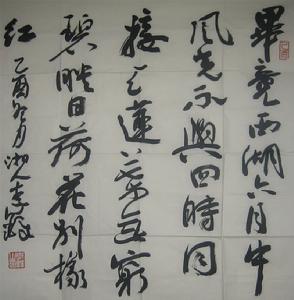 畢竟西湖六月中
風光不與四時同
接天蓮葉無窮
碧映日荷花别樣
紅 乙酉冬月